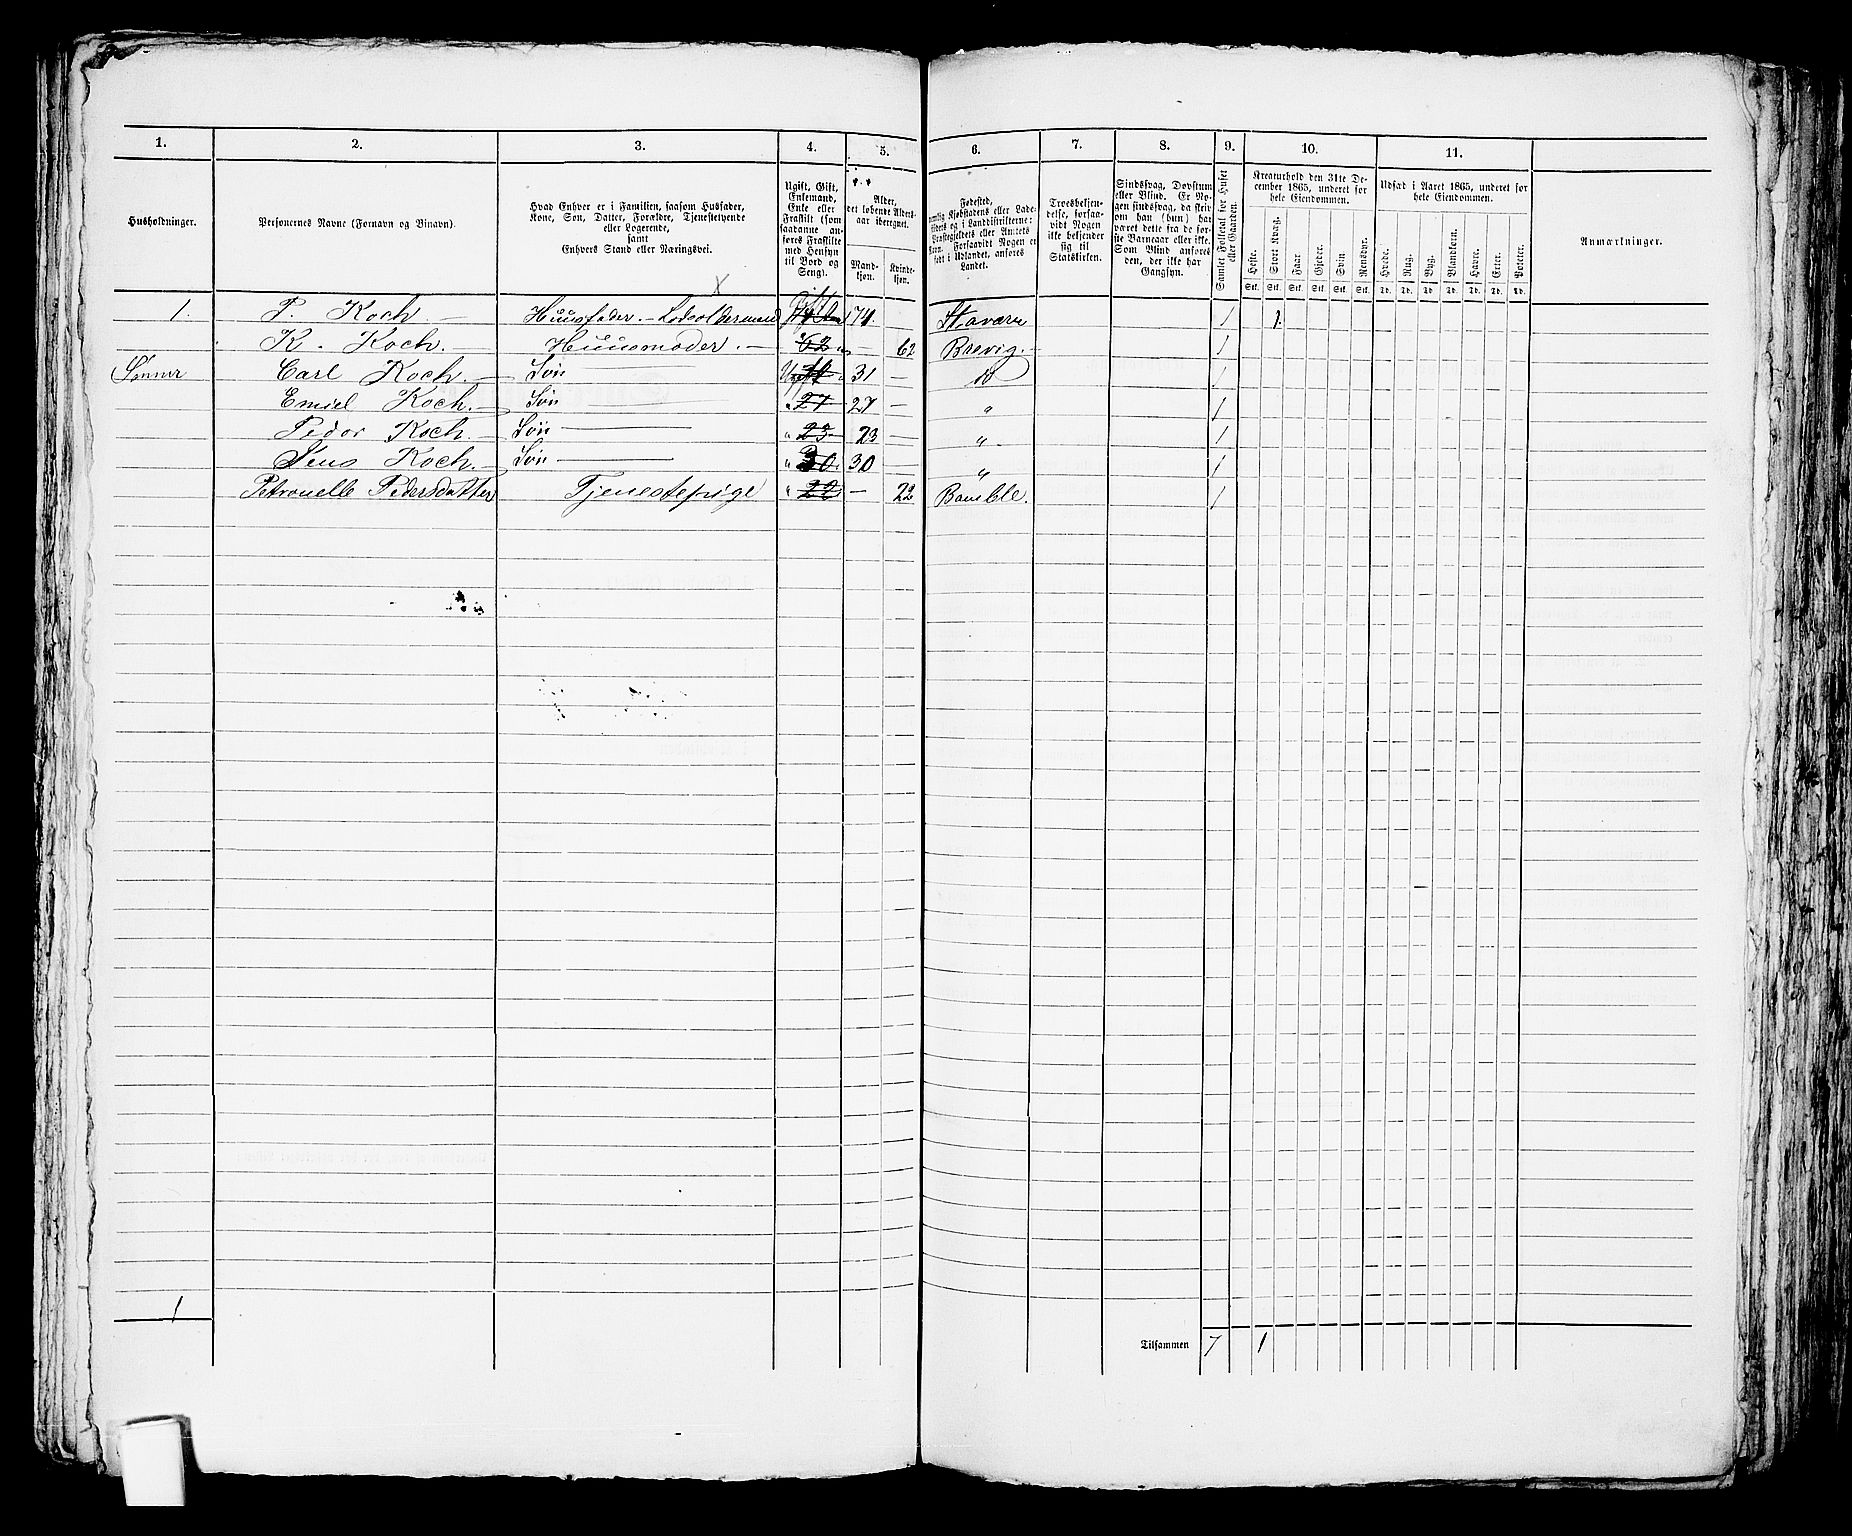 1. 2. 3. 4. 5. 6. 7. 8. 9. 10. 11.
Husholdninger.
Personernes Navne (Fornavn og Binavn).
Hvad Enhver er i Familien, saasom Husfader,
Kone, Søn, Datter, Forældre, Tjenestetyende
eller Logerende,
samt
Enhvers Stand eller Næringsvei.
Ugift, Gift,
Enkemand,
Enke eller
Fraskilt (som
saadanne an-
føres Fraskilte
med Hensyn
til Bord og
Seng).
Alder,
det løbende Alders-
aar iberegnet.
Mand-
kjøn.
Kvinde-
kjøn.
Fødested,
nemlig Kjøbstadens eller Lade-
stedets og i Landdistrikterne:
Præstegjeldets eller Amtets
Navn. Forsaavidt Nogen er
født i Udlandet, anføres
Landet.
Troesbekjen-
delse, forsaa-
vidt Nogen
ikke bekjender
sig til
Statskirken.
Sindssvag, Døvstum
eller Blind. Er No-
gen sindssvag, da skri-
ves om han (hun) har
været dette fra de før-
ste Barneaar eller ikke.
Som Blind ansøres
den, der ikke har
Gangsyn.
Samlet Folketal for Huset
eller Gaarden.
Kreaturhold den 31te De-
cember 1865, underet for
hele Eiendommen.
Heste. Stort Kvæg. Faar Gjeder. Svin Rensdyr.
Stk. Stk. Stk. Stk. Stk. Stk.
Udsæd i Aaret 1865, underet for
hele Eiendommen.
Hvede. Rug. Byg. Blandkorn. Havre. Erter. Poteter.
Td. Td. Td Td. Td. Td. Td.
Anmærkninger.
1. P. Koch. Huusfader. - Lodsoldermand Gift 74. Stavern 1 1.
K. Koch. Huusmoder. 62 62 Brevig. 1
Sønner Carl Koch. Søn Ugift 31 do 1
Emiel Koch. Søn " 27 27 " 1
Peder Koch. Søn " 23 23 " 1
Jens Koch. Søn " 30 30 " 1
Petronelle Pedersdatter Tjenestepige " 22 22 Bamble. 1
1
Tilsammen 7 1